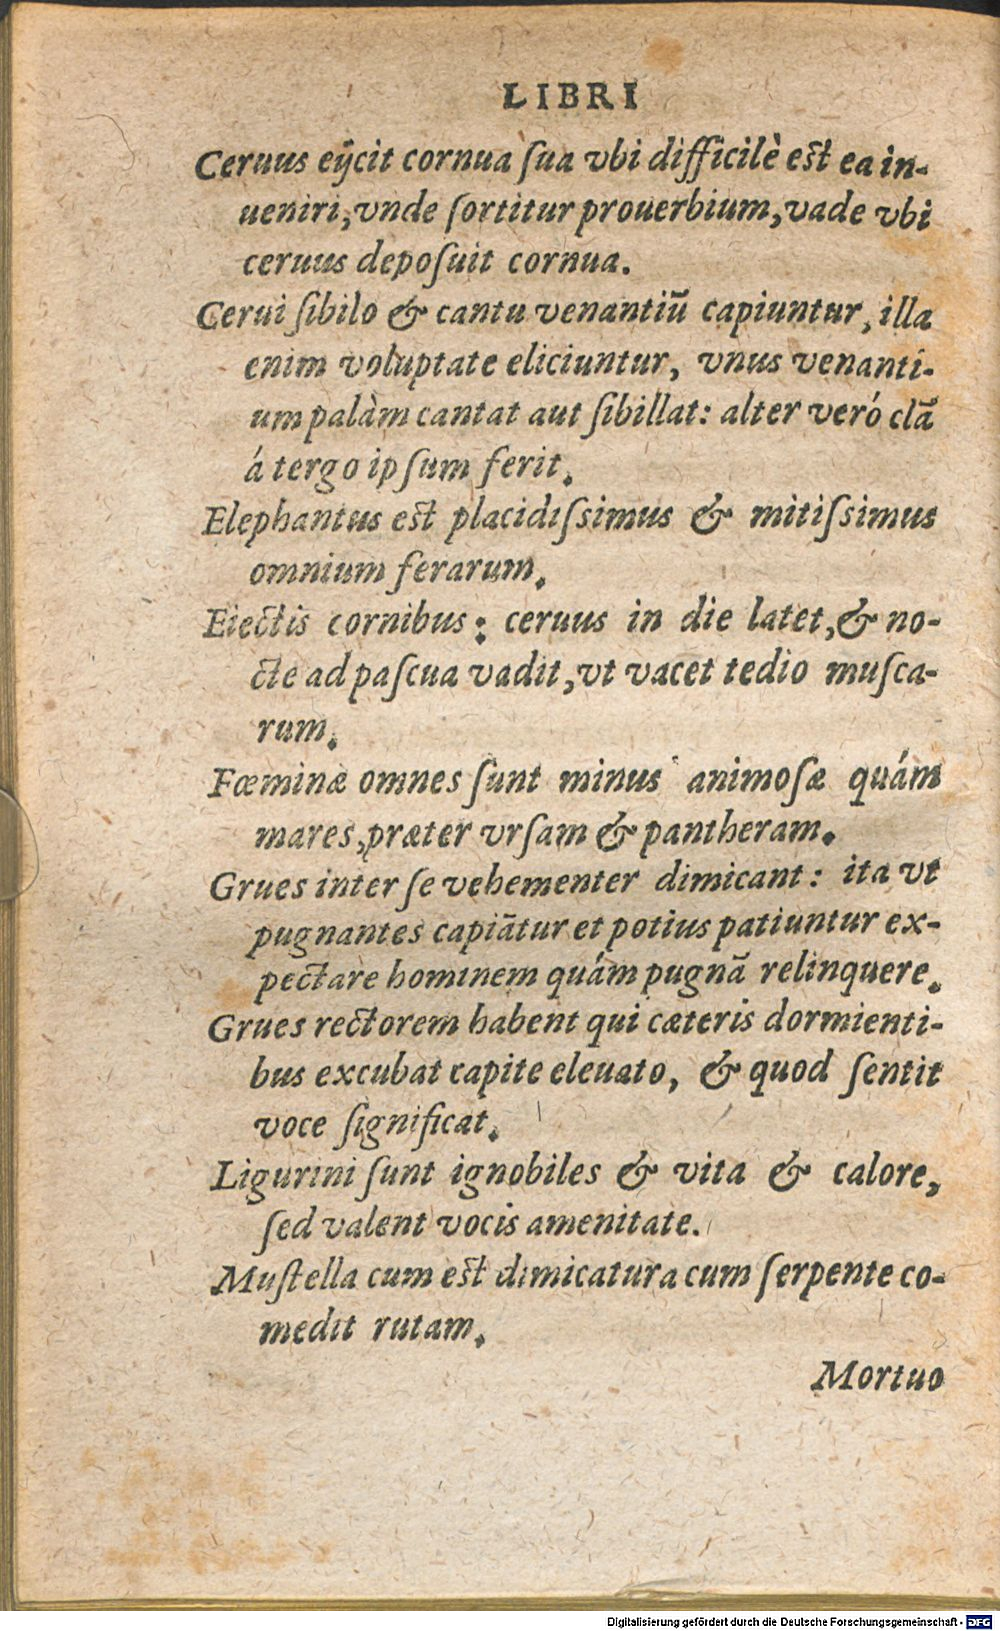 LIBRI
Ceruus eijcit cornua ſua vbi difficilè est ea in-
ueniri, vnde ſortitur prouerbium, vade vbi
ceruus depoſuit cornua.
Cerui ſibilo & cantu venantiũ capiuntur, illa
enim voluptate eliciuntur, vnus venanti-
um palàm cantat aut ſibillat: alter veró clā
á tergo ipſum ferit.
Elephantus est placidiſsimus & mitiſsimus
omnium ferarum.
Eiectis cornibus: ceruus in die latet, & no-
cte ad paſcua vadit, vt vacet tedio muſca-
rum.
Fœminæ omnes ſunt minus animoſæ quám
mares, præter vrſam & pantheram.
Grues inter ſe vehementer dimicant: ita vt
pugnantes capiãtur et potius patiuntur ex-
pectare hominem quám pugnã relinquere.
Grues rectorem habent qui cæteris dormienti-
bus excubat capite eleuato, & quod ſentit
voce ſignificat.
Ligurini ſunt ignobiles & vita & calore,
ſed valent vocis amenitate.
Muſtella cum est dimicatura cum ſerpente co-
medit rutam.
Mortuo
Digitalisierung gefördert durch die Deutsche Forschungsgemeinschaft - DFG